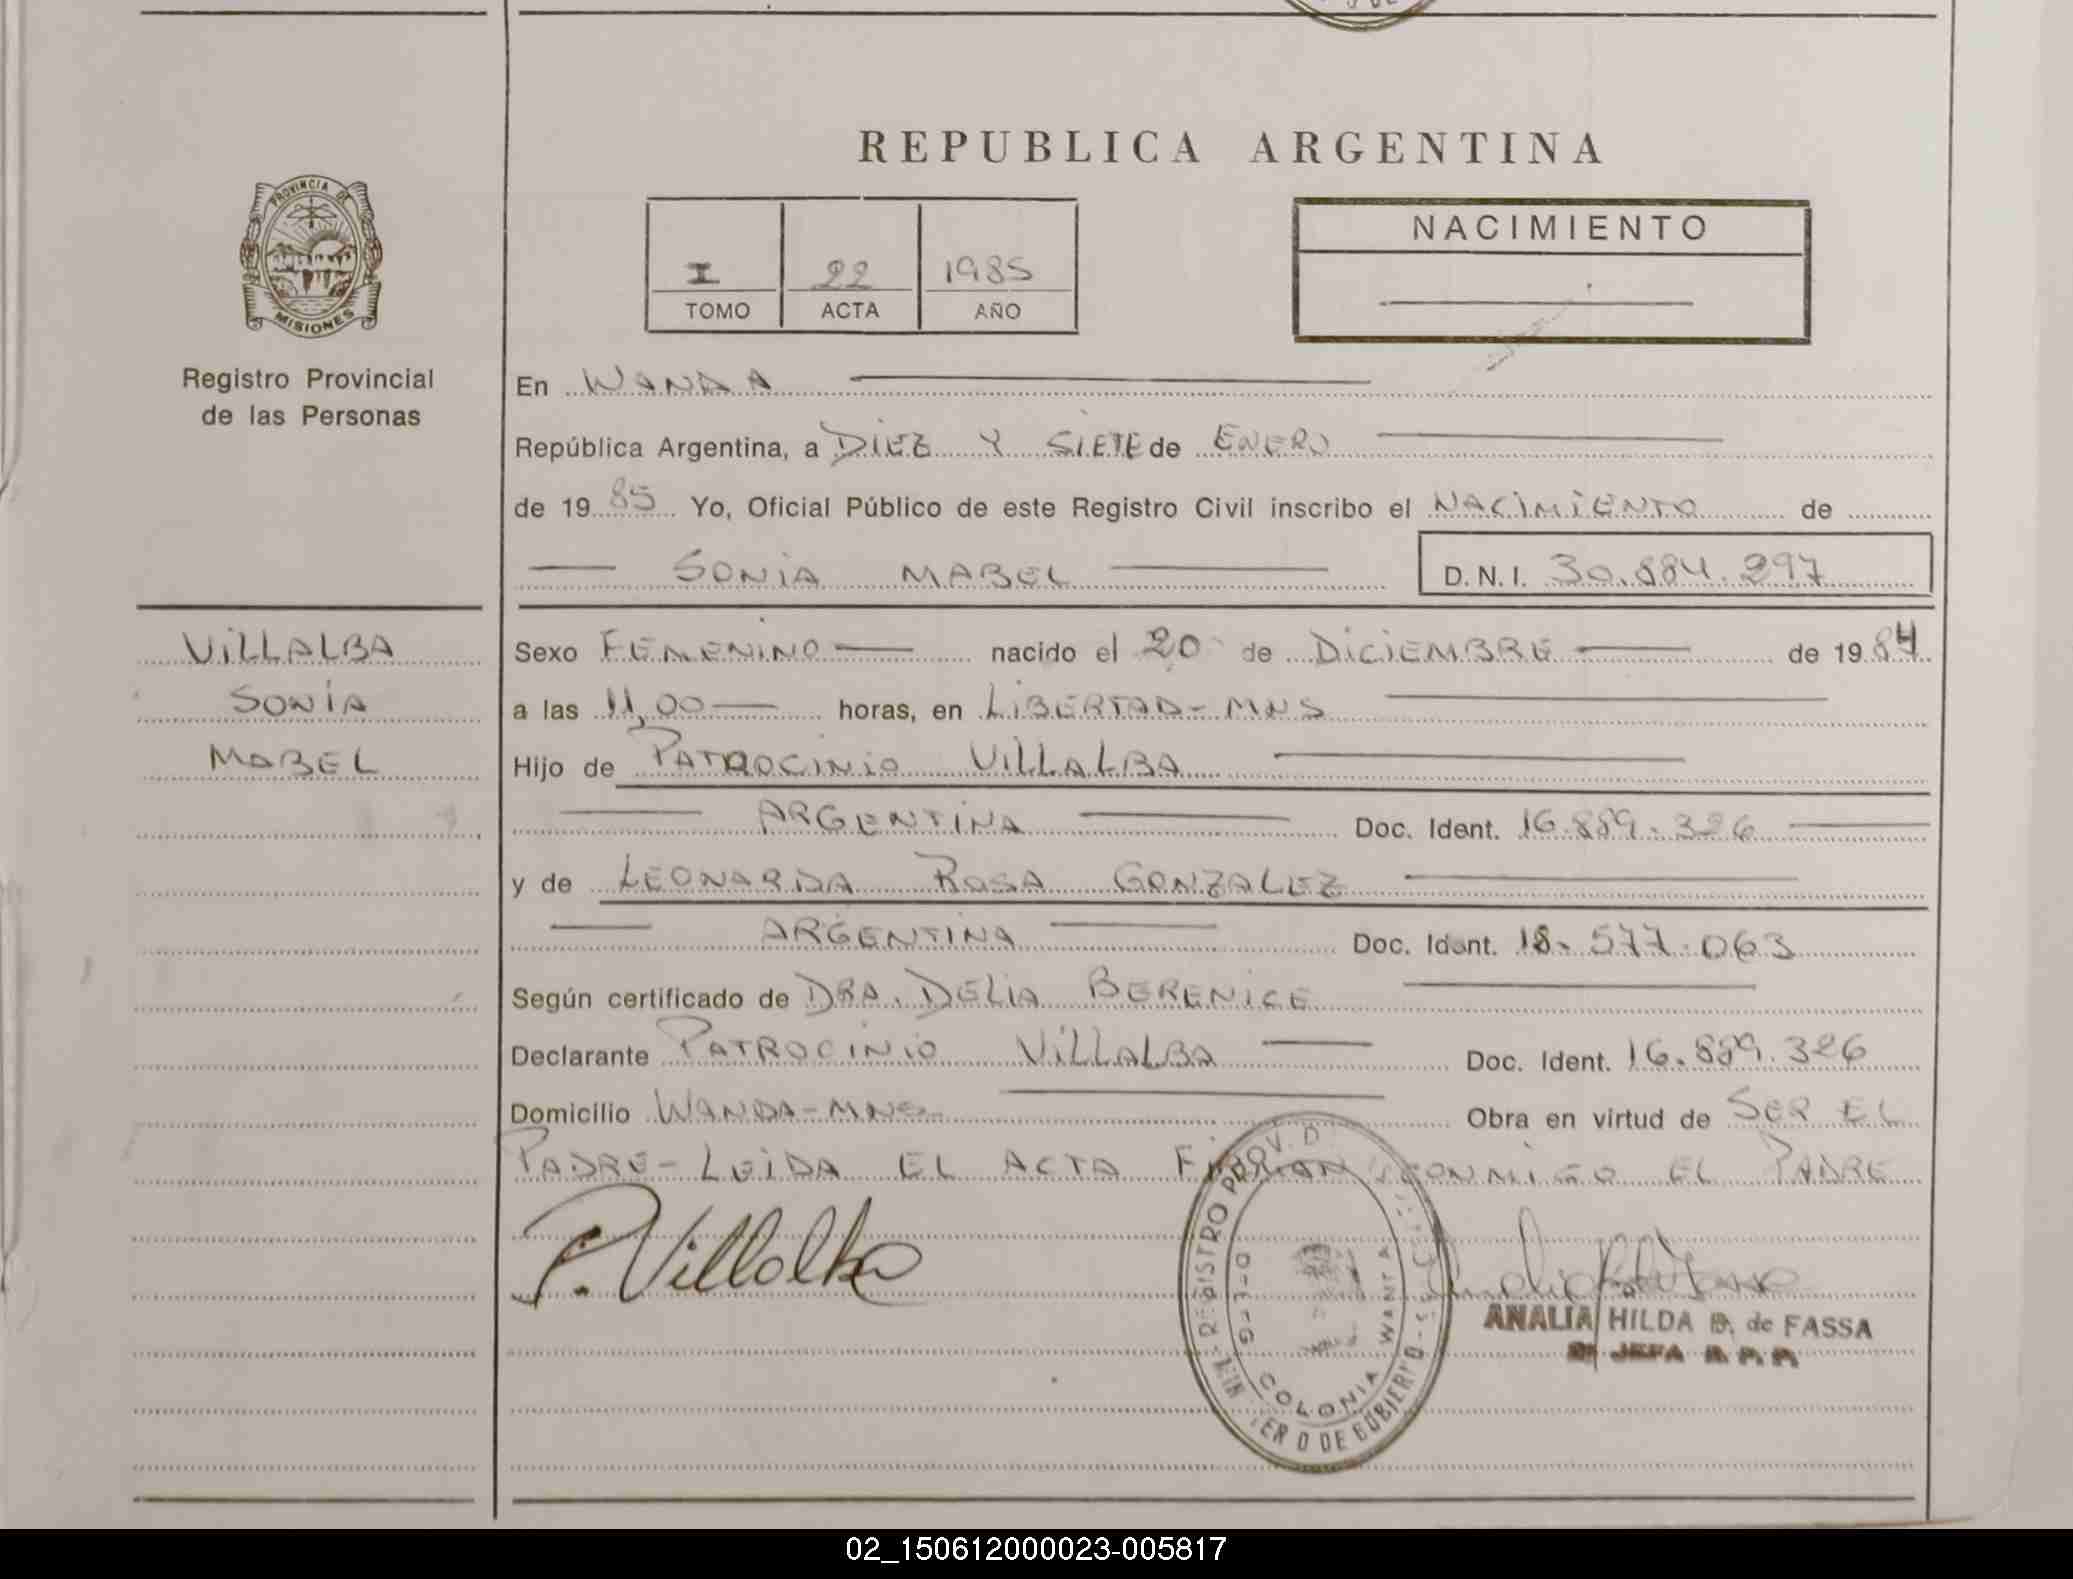 REPUBLICA ARGENTINA
PROVINCIA DE
MISIONES
Registro Provincial
de las Personas
I 22 1985
TOMO ACTA AÑO
NACIMIENTO
En WANDA
República Argentina, a DIEZ Y SIETE de ENERO
de 19 85 Yo, Oficial Público de este Registro Civil inscribo el NACIMIENTO de
SONIA MABEL D.N.I. 30.884.297
VILLALBA
SONIA
MABEL
Sexo FEMENINO nacido el 20 de DICIEMBRE de 19 84
a las 11,00 horas, en LIBERTAD-MNS
Hijo de PATROCINIO VILLALBA
ARGENTINA Doc. Ident. 16.889.326
y de LEONARDA ROSA GONZALEZ
ARGENTINA Doc. Ident. 18.577.063
Según certificado de DRA. DELIA BERENICE
Declarante PATROCINIO VILLALBA Doc. Ident. 16.889.326
Domicilio WANDA-MNS- Obra en virtud de SER EL
PADRE-LEIDA EL ACTA FIRMAN CONMIGO EL PADRE
P. Villalba
REGISTRO PROV. D
COLONIA WANDA
DE GOBIERNO
ANALIA HILDA B. de FASSA
JEFA R. P. P.
02_150612000023-005817